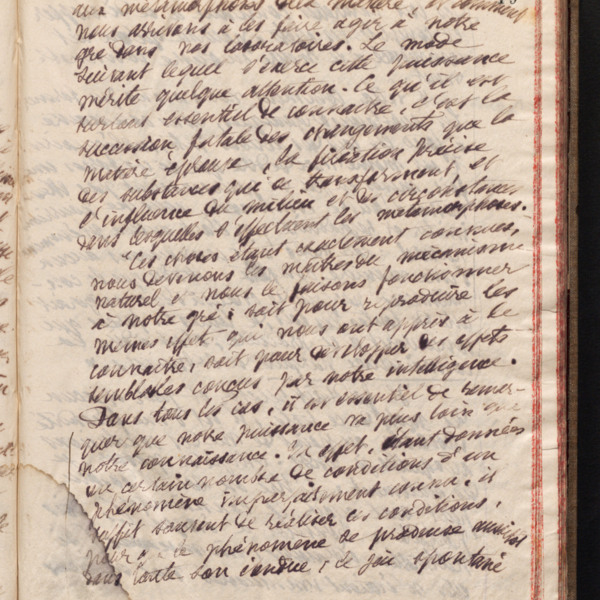 aux métamorphoses de la matière, et comment
nous arrivons à les faire agir à notre
gré dans nos laboratoires. Le mode
suivant lequel s'exerce cette puissance
mérite quelque attention. Ce qu'il est
surtout essentiel de connaître, c'est la
succession fatale des changements que la
matière éprouve, la filiation précise
des substances qui se transforment, et
l'influence du milieu et des circonstances
dans lesquelles s'effectuent les métamorphoses.
"Ces choses étant exactement connues,
nous devenons les maîtres du mécanisme
naturel et nous le faisons fonctionner
à notre gré : soit pour reproduire les
mêmes effets qui nous ont appris à le
connaître, soit pour développer des effets
semblables conçus par notre intelligence.
Dans tous les cas, il est essentiel de remar-
quer que notre puissance va plus loin que
notre connaissance. En effet, étant données
un certain nombre de conditions d'un
phénomène imparfaitement connu, il
suffit souvent de réaliser ces conditions,
pour que le phénomène se produise aussitôt
dans toute son étendue ; le jeu spontané